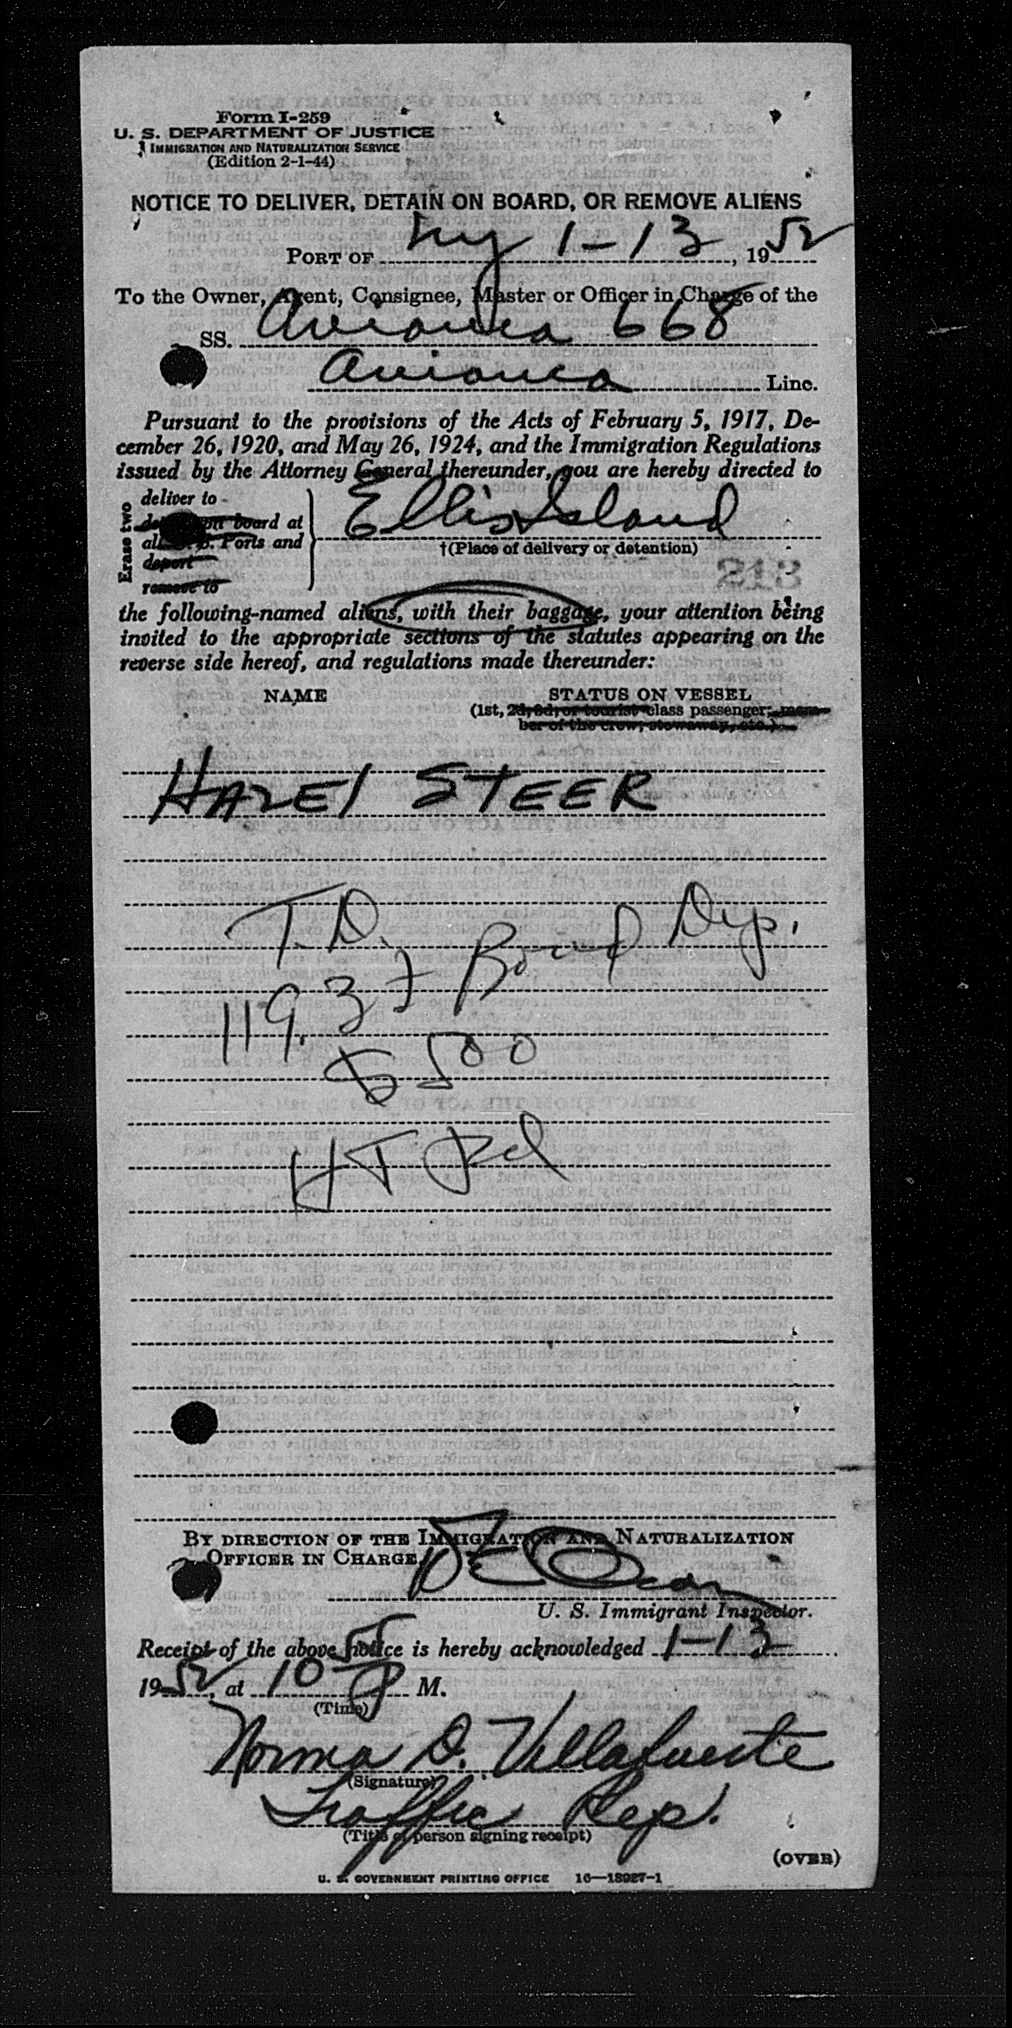 Form I-259
U. S. DEPARTMENT OF JUSTICE
IMMIGRATION AND NATURALIZATION SERVICE
(Edition 2-1-44)
NOTICE TO DELIVER, DETAIN ON BOARD, OR REMOVE ALIENS
PORT OF NY 1-13, 1952
To the Owner, Agent, Consignee, Master or Officer in Charge of the
SS. Avianca 668
Avianca Line.
Pursuant to the provisions of the Acts of February 5, 1917, De-
cember 26, 1920, and May 26, 1924, and the Immigration Regulations
issued by the Attorney General thereunder, you are hereby directed to
Erase two
deliver to
detain on board at
all U. S. Ports and
deport
remove to
Ellis Island
†(Place of delivery or detention)
213
the following-named aliens, with their baggage, your attention being
invited to the appropriate sections of the statutes appearing on the
reverse side hereof, and regulations made thereunder:
NAME STATUS ON VESSEL
(1st, 2d, 3d, or tourist class passenger; mem-
ber of the crew, stowaway, etc.)
HAZEl STEER
T. D.
119. 3 7 Bond Dep.
$ 500
HT
BY DIRECTION OF THE IMMIGRATION AND NATURALIZATION
OFFICER IN CHARGE,
U. S. Immigrant Inspector.
Receipt of the above notice is hereby acknowledged 1-13
1952, at 10 55 P M.
(Time)
Norma D. Villafuerte
(Signature)
Traffic Rep.
(Title of person signing receipt)
(OVER)
U. S. GOVERNMENT PRINTING OFFICE 16—18027-1